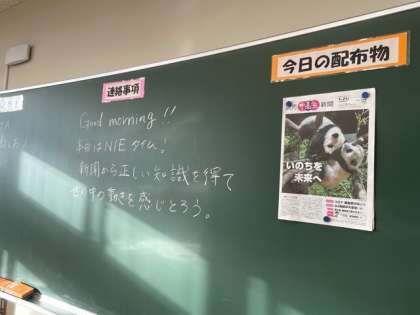 連絡事項
Good morning!!
本日はNIEタイム!
新聞から正しい知識を得て
世の中の動きを感じとろう。
今日の配布物
新聞
いのちを
未来へ